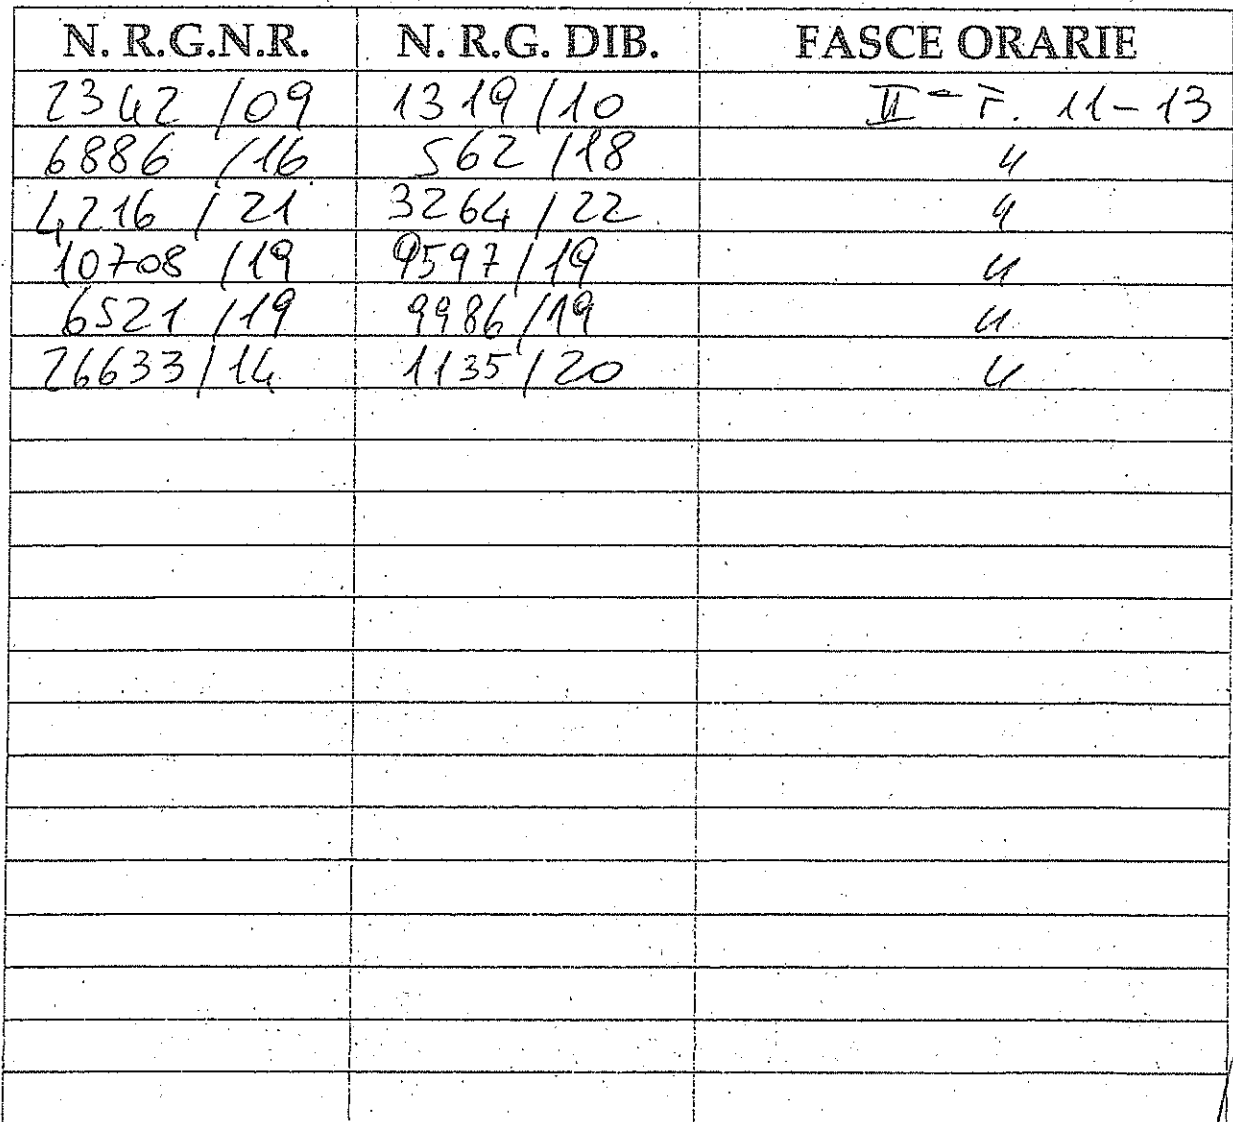 N. R.G.N.R. N. R.G. DIB. FASCE ORARIE
2342 /09 1319/10 II - F. 11-13
6886 /16 562/18 "
4216 /21 3264/22 "
10708 /19 9597/19 "
6521 /19 9986/19 "
26633/14 1135/20 "